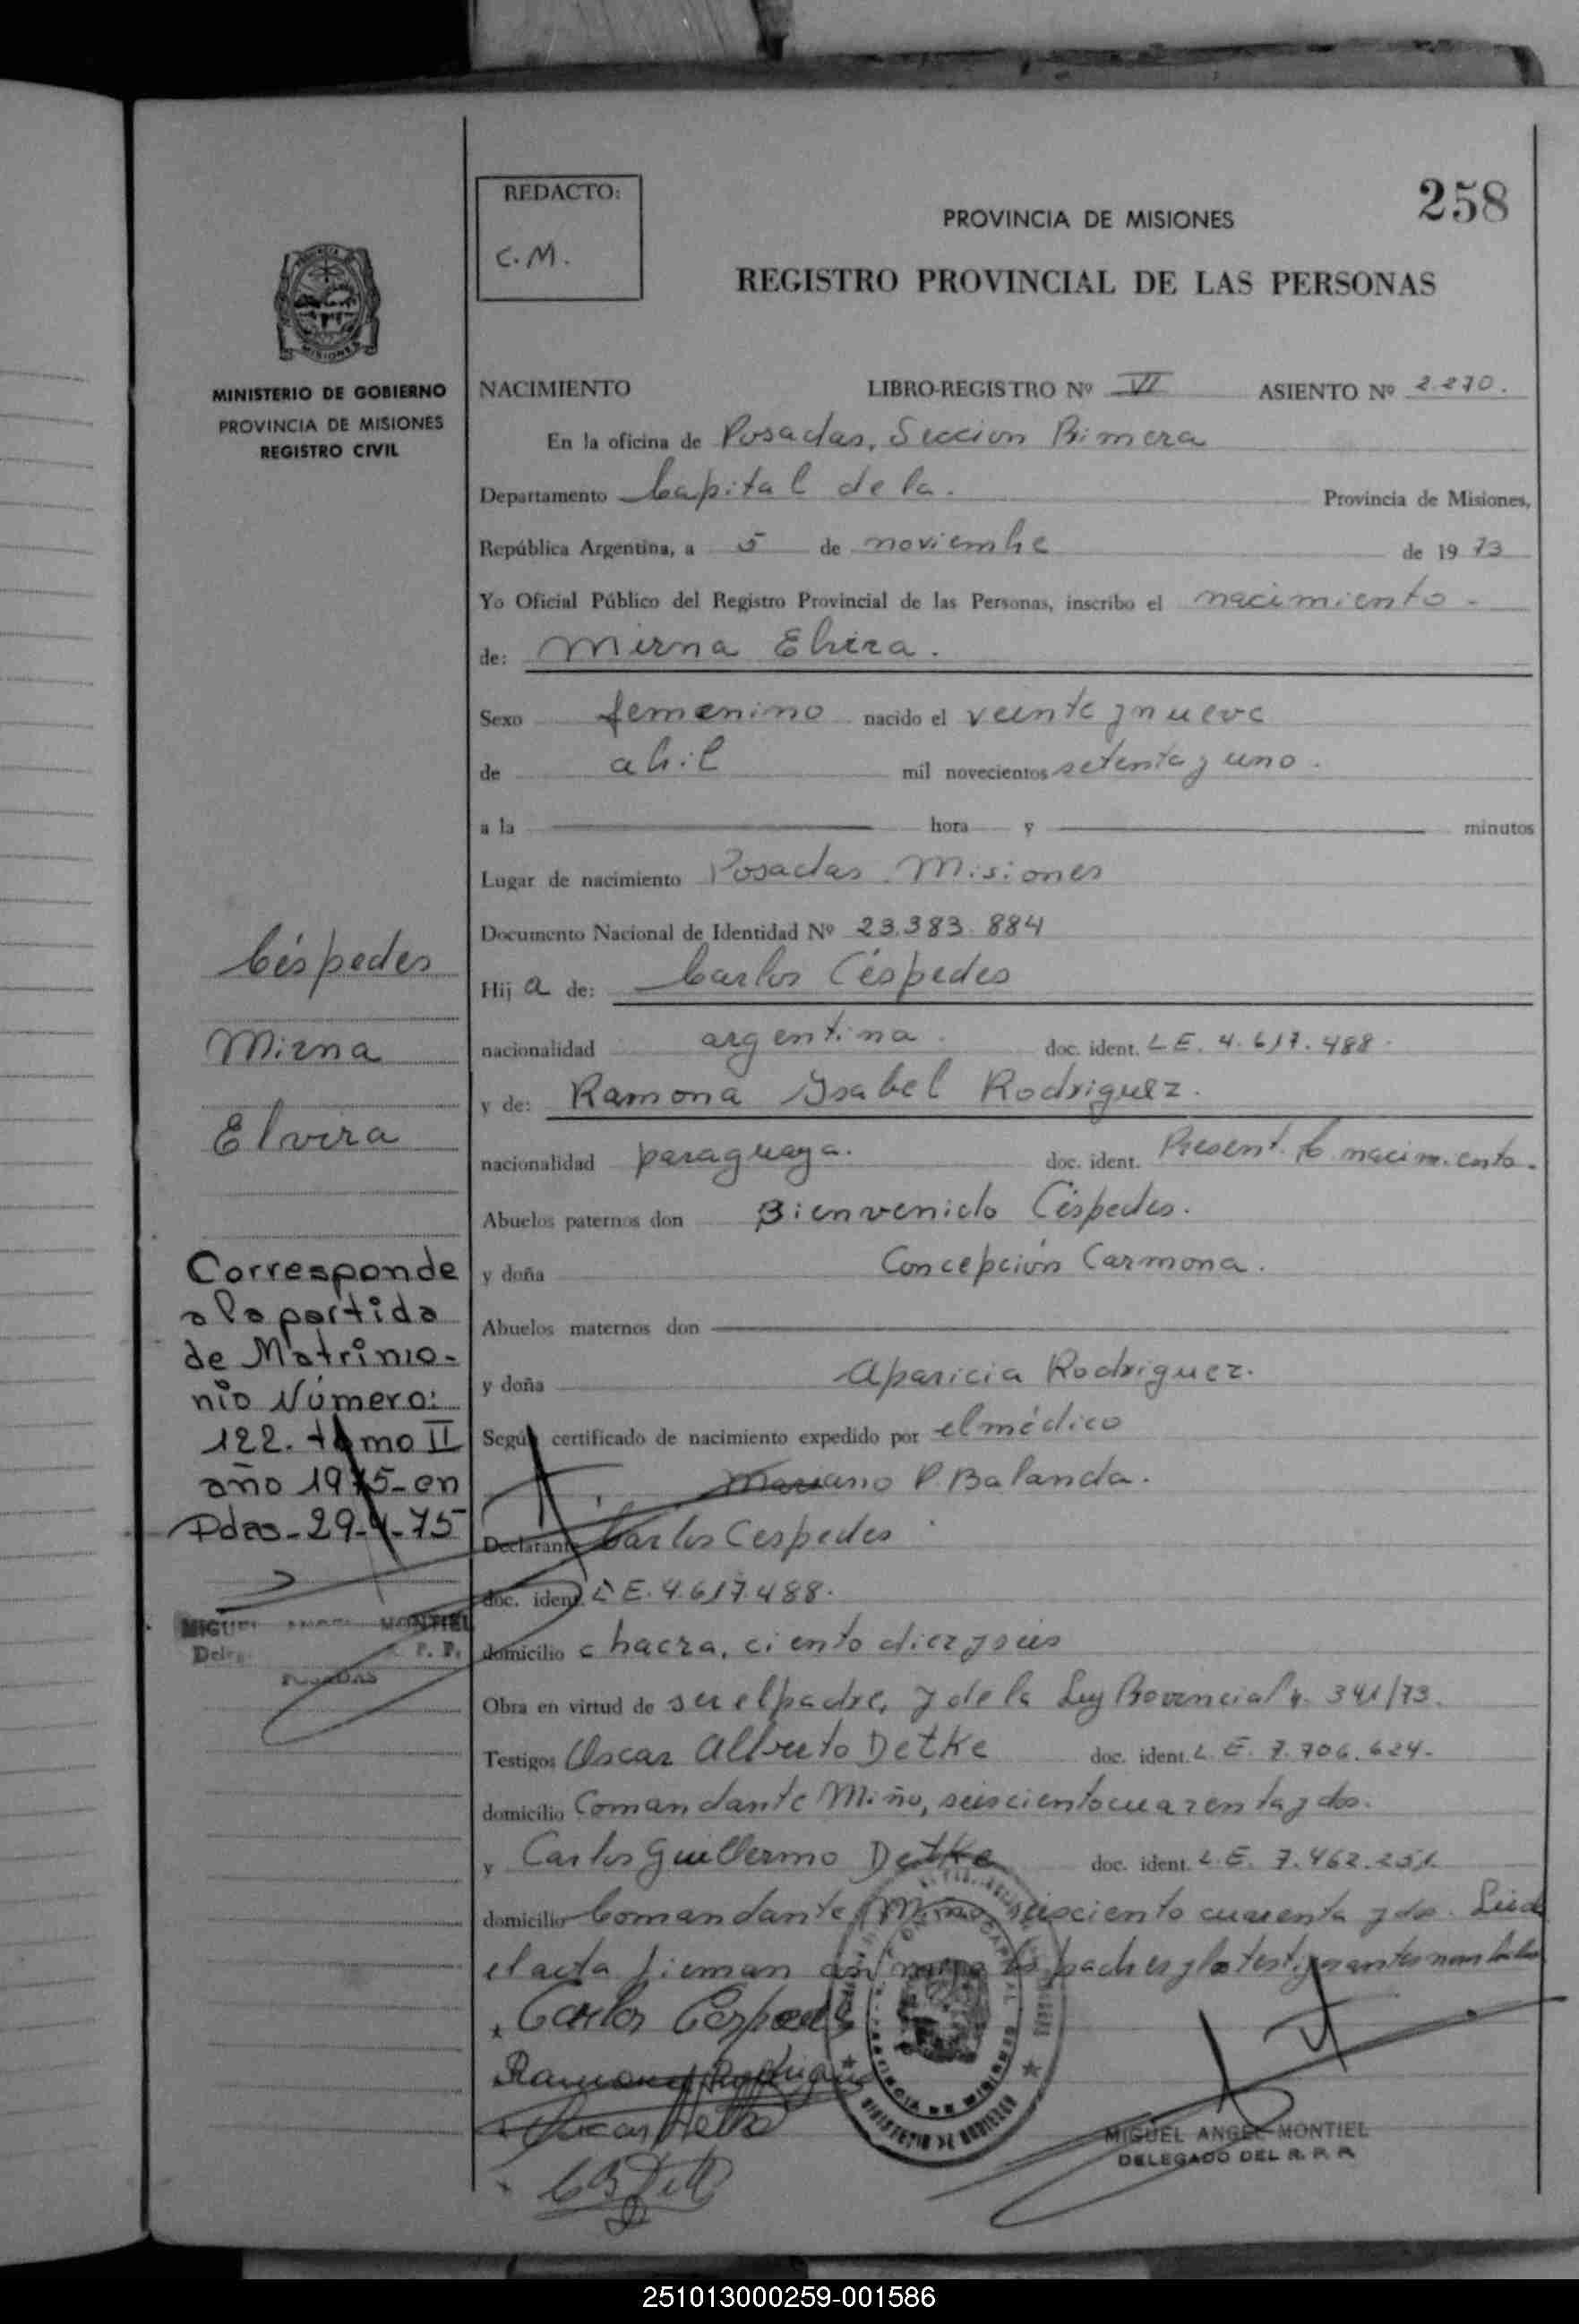 258
REDACTO:
C.M.
PROVINCIA DE MISIONES
REGISTRO PROVINCIAL DE LAS PERSONAS
MINISTERIO DE GOBIERNO
PROVINCIA DE MISIONES
REGISTRO CIVIL
NACIMIENTO LIBRO-REGISTRO Nº VI ASIENTO Nº 2.270.
En la oficina de Posadas, Seccion Primera
Departamento Capital de la. Provincia de Misiones,
República Argentina, a 5 de noviembre de 1973
Yo Oficial Público del Registro Provincial de las Personas, inscribo el nacimiento.
de: Mirna Elvira.
Sexo femenino nacido el veinte y nueve
de abril mil novecientos setenta y uno.
a la hora y minutos
Lugar de nacimiento Posadas. Misiones
Documento Nacional de Identidad Nº 23.383.884
Hija de: Carlos Céspedes
nacionalidad argentina. doc. ident. L E. 4.617.488.
y de: Ramona Ysabel Rodriguez.
nacionalidad paraguaya. doc. ident. Present. nacimiento.
Abuelos paternos don Bienvenido Céspedes.
y doña Concepción Carmona.
Abuelos maternos don
y doña Aparicia Rodriguez.
Según certificado de nacimiento expedido por el médico
Mariano P. Balanda.
Declarante Carlos Cespedes
doc. ident. L E. 4.617.488.
domicilio chacra, ciento diez y seis
Obra en virtud de ser el padre, y de la Ley Provincial n. 341/73.
Testigos Oscar Alberto Detke doc. ident. L. E. 7.706.624.
domicilio Comandante Miño, seiscientocuarenta y dos.
y Carlos Guillermo Detke doc. ident. L. E. 7.462.251.
domicilio Comandante Miño seisciento cuarenta y dos. Leida
el acta firman los padres y los testigos antes nombrados
Carlos Cespedes
MIGUEL ANGEL MONTIEL
DELEGADO DEL R. P. P.
Céspedes
Mirna
Elvira
Corresponde
a la partida
de Matrimo-
nio Número:
122. tomo II
año 1975-en
Pdas-29-4-75
MIGUEL ANGEL MONTIEL
POSADAS
251013000259-001586